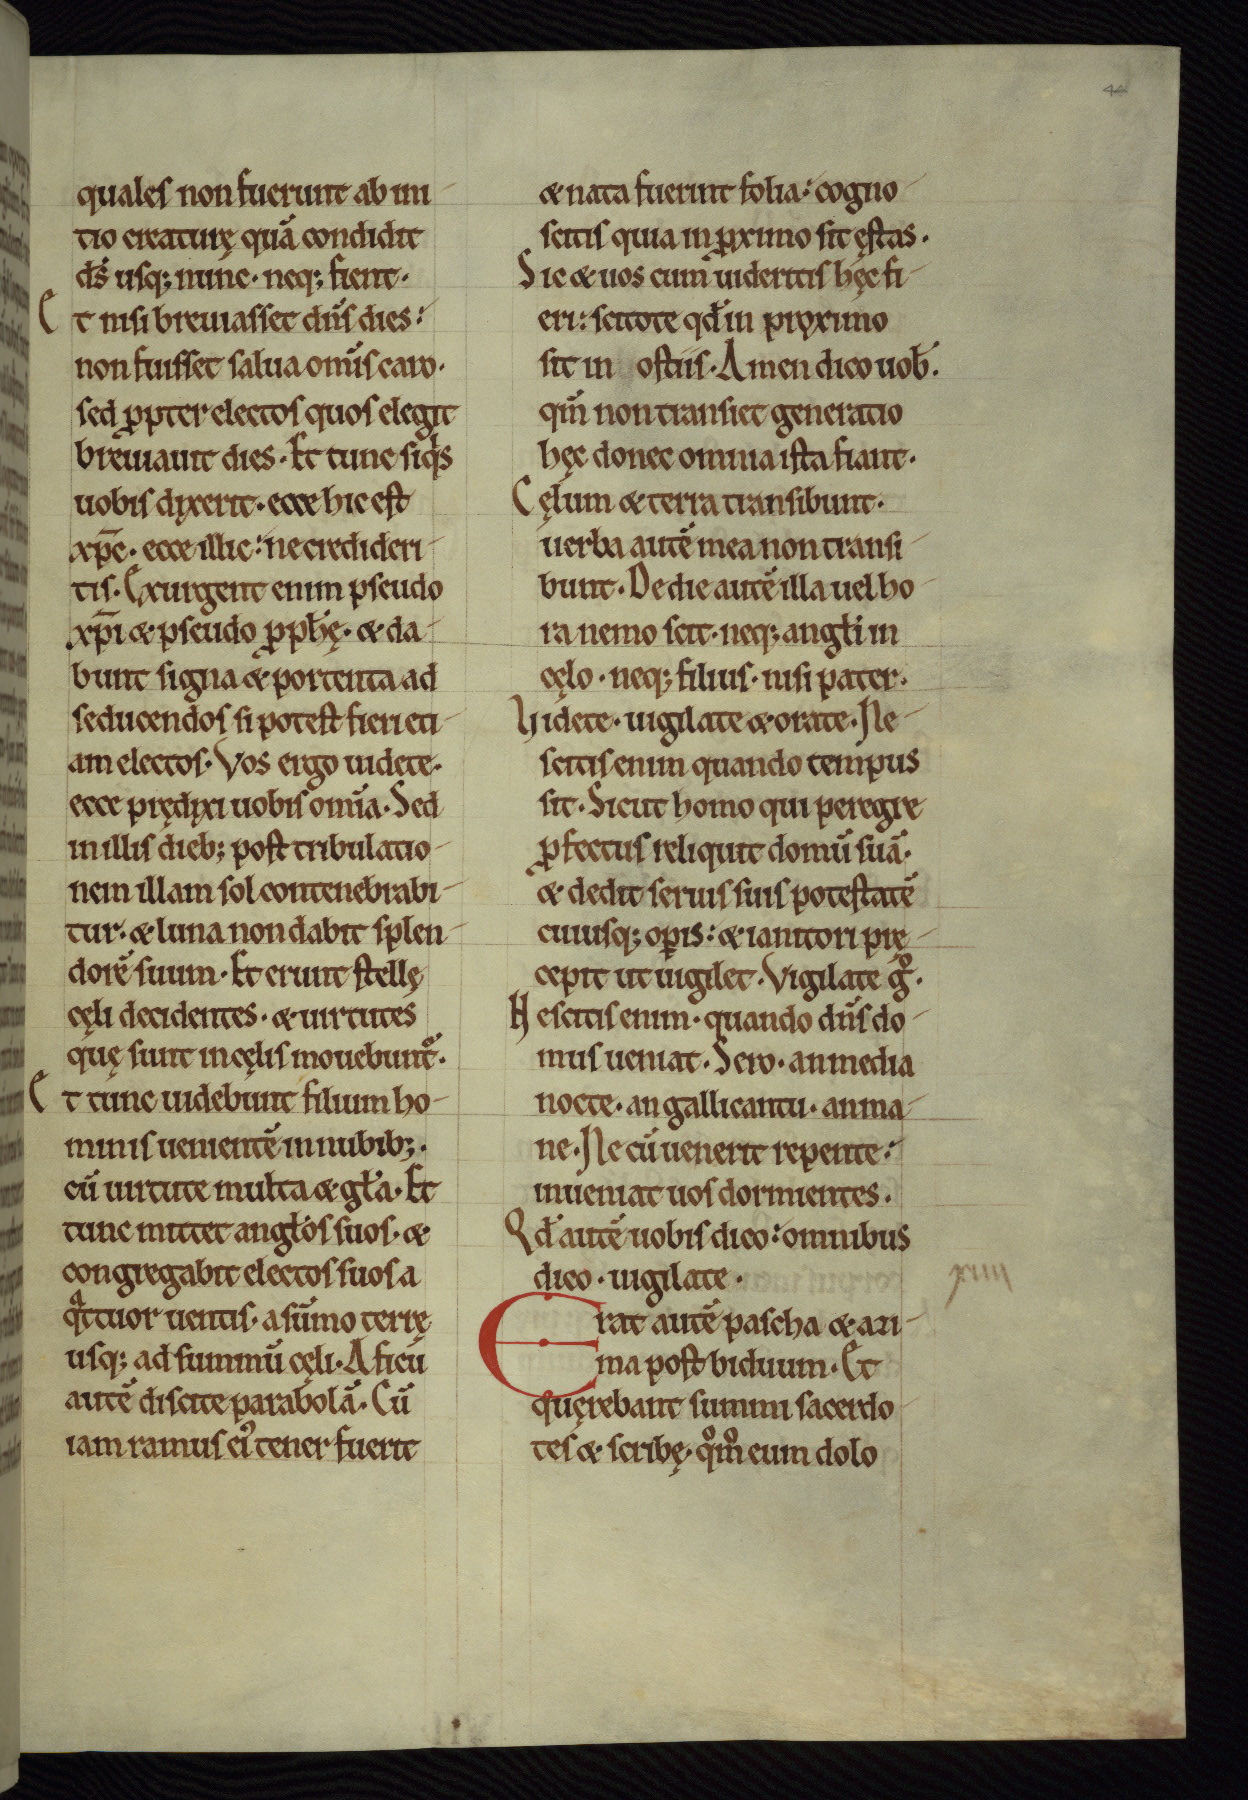 44
quales non fuerunt ab ini-
tio creaturę quā condidit
ds̄ usq; nunc · neq; fient ·
Et nisi breuiasset dn̄s dies :
non fuisset salua omīs caro ·
sed ꝓpter electos quos elegit
breuiauit dies · Et tunc siq̇s
uobis dixerit · ecce hic est
xp̄c · ecce illic : ne credideri-
tis · Exurgent enim pseudo
xp̄i & pseudo ꝓph̄ę · & da-
bunt signa & portenta ad
seducendos si potest fieri eti-
am electos · Vos ergo uidete ·
ecce prędixi uobis om̄ia · Sed
in illis dieb; post tribulatio-
nem illam sol contenebrabi-
tur · & luna non dabit splen-
dorē suum · Et erunt stellę
cęli decidentes · & uirtutes
quę sunt in cęlis mouebunt᷑ ·
Et tunc uidebunt filium ho-
minis uenientē in nubib; ·
cū uirtute multa & gl̄a · Et
tunc mittet angl̄os suos · &
congregabit electos suos a
qͣttuor uentis · a sūmo terrę
usq; ad summū cęli · A ficu
autē discite parabolā · Cū
iam ramus ei᷒ tener fuerit
& nata fuerint folia : cogno-
scitis quia in ꝓximo sit ęstas ·
Sic & uos cum uideritis hęc fi-
eri : scitote qd̄ in proximo
sit in ostiis · Amen dico uob̄ ·
qm̄ non transiet generatio
hęc donec omnia ista fiant ·
Cęlum & terra transibunt ·
uerba autē mea non transi-
bunt · De die autē illa uel ho-
ra nemo scit · neq; angl̄i in
cęlo · neq; filius · nisi pater ·
Uidete · uigilate & orate · Ne-
scitis enim quando tempus
sit · Sicut homo qui peregre
ꝓfectus reliquit domū suā ·
& dedit seruis suis potestatē
cuiusq; oꝑis : & ianitori prę-
cepit ut uigilet · Vigilate gͦ ·
Nescitis enim · quando dn̄s do-
mus ueniat · Sero · an media
nocte · an gallicantu · an ma-
ne · Ne cū uenerit repente :
inueniat uos dormientes ·
Qd̄ autē uobis dico : omnibus
dico · uigilate ·
xiiii
Erat autē pascha & azi-
ma post biduum · Et
quęrebant summi sacerdo-
tes & scribę · qͦmͦ eum dolo